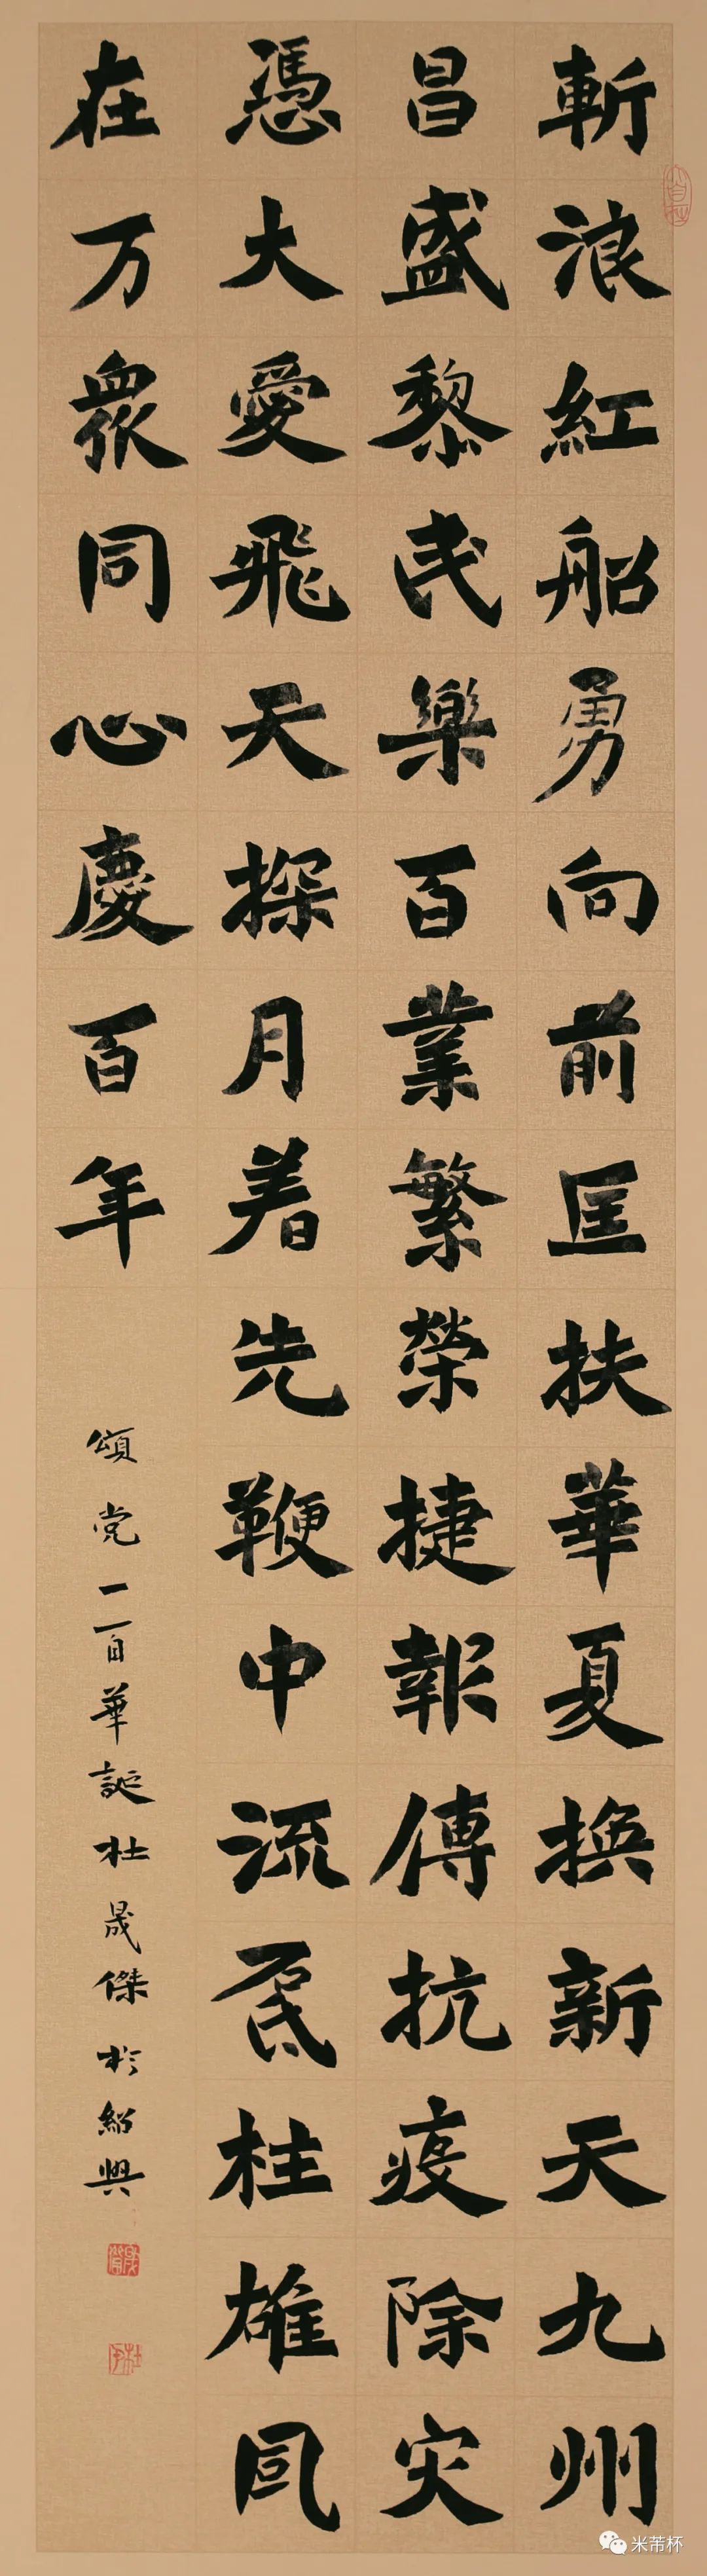 斬浪紅船勇向前匡扶華夏換新天九州
昌盛黎民樂百業繁榮捷報傳抗疫除灾
憑大愛飛天探月着先鞭中流砥柱雄風
在万眾同心慶百年
頌党一百華誕杜晟傑於紹興
米芾杯